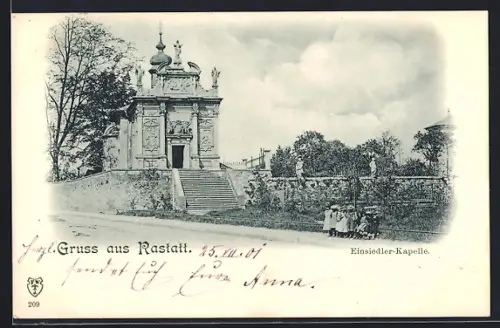 Herzl. Gruss aus Rastatt. 25. VII. 01
Einsiedler-Kapelle.
sendet Euch Eure Anna.
209